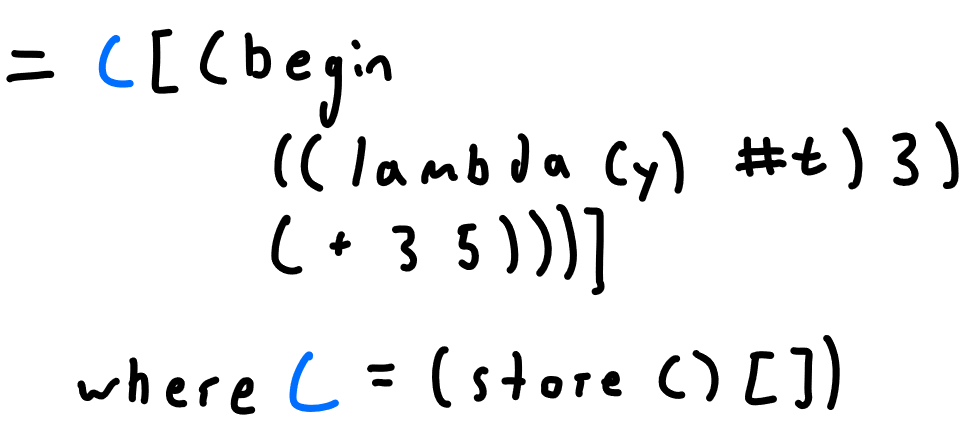 = C[(begin
((lambda (y) #t) 3)
(+ 3 5)))]
where C = (store () [])